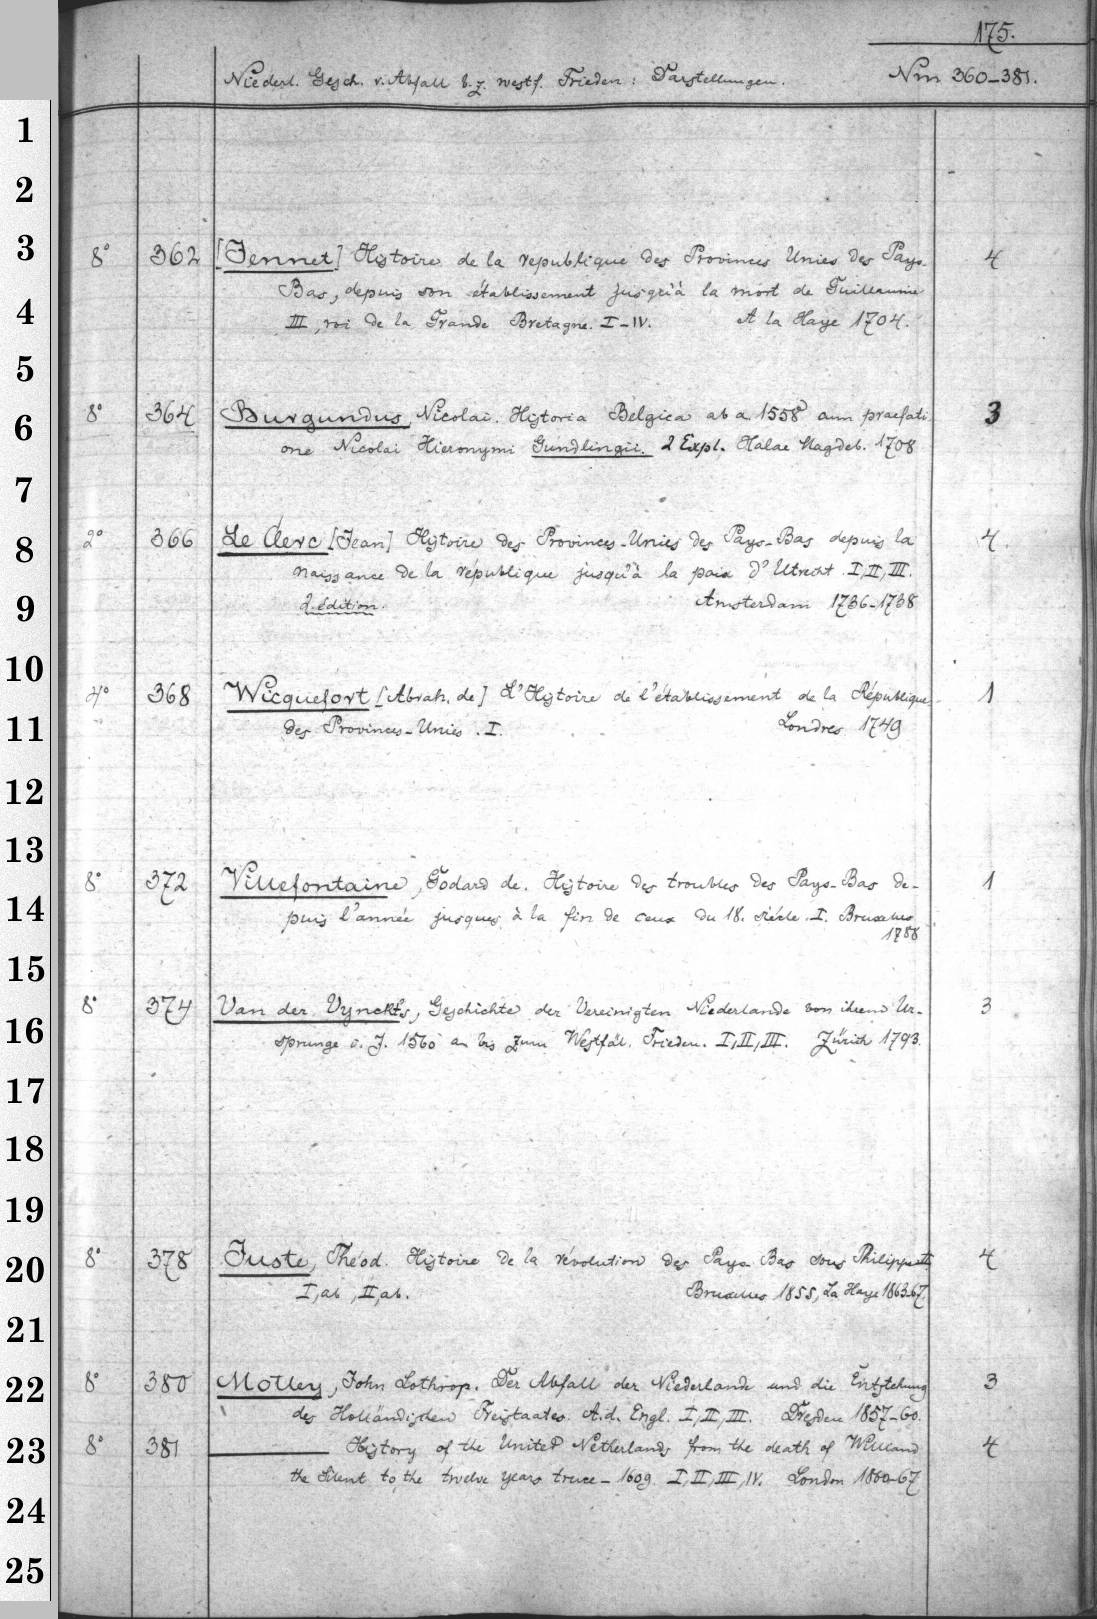 175.
Niederl. Gesch. v. Abfall b. z. westf. Frieden: Darstellungen. Nrn 360-381.
1
2
3 8° 362 [Jennet] Histoire de la republique des Provinces Unies des Pays- 4
Bas, depuis son établissement jusqu'à la mort de Guillaume
4 III, roi de la Grande Bretagne. I-IV. A la Haye 1704.
5
6 8° 364 Burgundus, Nicolai. Historia Belgica ab a. 1558 cum praefati- 3
one Nicolai Hieronymi Gundlingii. 2 Expl. Halae Magdeb. 1708
7
8 2° 366 Le Clerc [Jean] Histoire des Provinces-Unies des Pays-Bas depuis la 4.
naissance de la république jusqu'à la paix d'Utrecht. I, II, III.
9 2. édition. Amsterdam 1736-1738
10
4° 368 Wicquefort [Abrah. de] L'Histoire de l'établissement de la République 1
11 des Provinces-Unies. I. Londres 1749
12
13
8° 372 Villefontaine, Godard de. Histoire des troubles des Pays-Bas de- 1
14 puis l'année jusques à la fin de ceux du 18. siécle. I. Bruxelles
1788
15
8° 374 Van der Vynckts, Geschichte der Vereinigten Niederlande von ihrem Ur- 3
16 sprunge i. J. 1560 an bis zum Westfäl. Frieden. I, II, III. Zürich 1793.
17
18
19
20 8° 378 Juste, Théod. Histoire de la révolution des Pays-Bas sous Philippe II 4
I, ab, II, ab. Bruxelles 1855, La Haye 1863-67.
21
22 8° 380 Motley, John Lothrop. Der Abfall der Niederlande und die Entstehung 3
des Holländischen Freistaates. A. d. Engl. I, II, III. Dresden 1857-60.
23 8° 381 ——— History of the United Netherlands from the death of William 4
the Silent to the twelve years truce - 1609. I, II, III, IV. London 1860-67
24
25